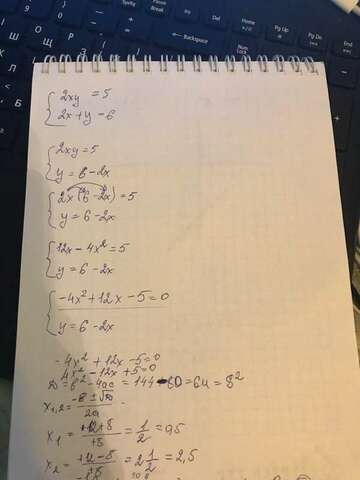 PrtSc
Insert
Delete
PgUp
PgDn
Backspace
Num Lock
{ 2xy = 5
2x + y - 6
{ 2xy = 5
y = 6 - 2x
{ 2x(6 - 2x) = 5
y = 6 - 2x
{ 12x - 4x² = 5
y = 6 - 2x
{ -4x² + 12x - 5 = 0
y = 6 - 2x
-4x² + 12x - 5 = 0
4x² - 12x + 5 = 0
D = b² - 4ac = 144 - 80 = 64 = 8²
x₁,₂ = (-b ± √D) / 2a
x₁ = (+12 + 8) / +8 = 1/2 = 0,5
x₂ = (+12 - 8) / +8 = 2 1/2 = 2,5